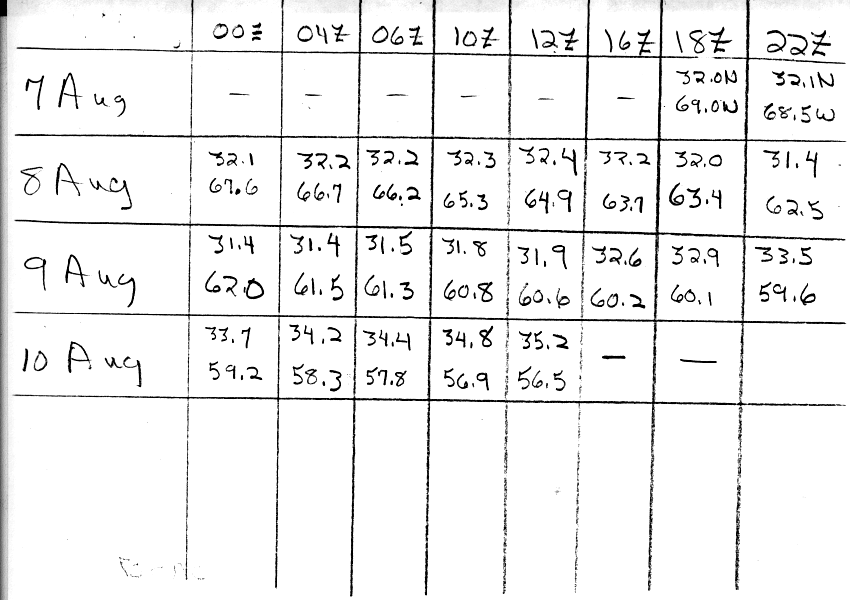 00Z 04Z 06Z 10Z 12Z 16Z 18Z 22Z
7 Aug — — — — — — 32.0N 32.1N
69.0W 68.5W
8 Aug 32.1 32.2 32.2 32.3 32.4 32.2 32.0 31.4
67.6 66.7 66.2 65.3 64.9 63.7 63.4 62.5
9 Aug 31.4 31.4 31.5 31.8 31.9 32.6 32.9 33.5
62.0 61.5 61.3 60.8 60.6 60.2 60.1 59.6
10 Aug 33.7 34.2 34.4 34.8 35.2 — —
59.2 58.3 57.8 56.9 56.5